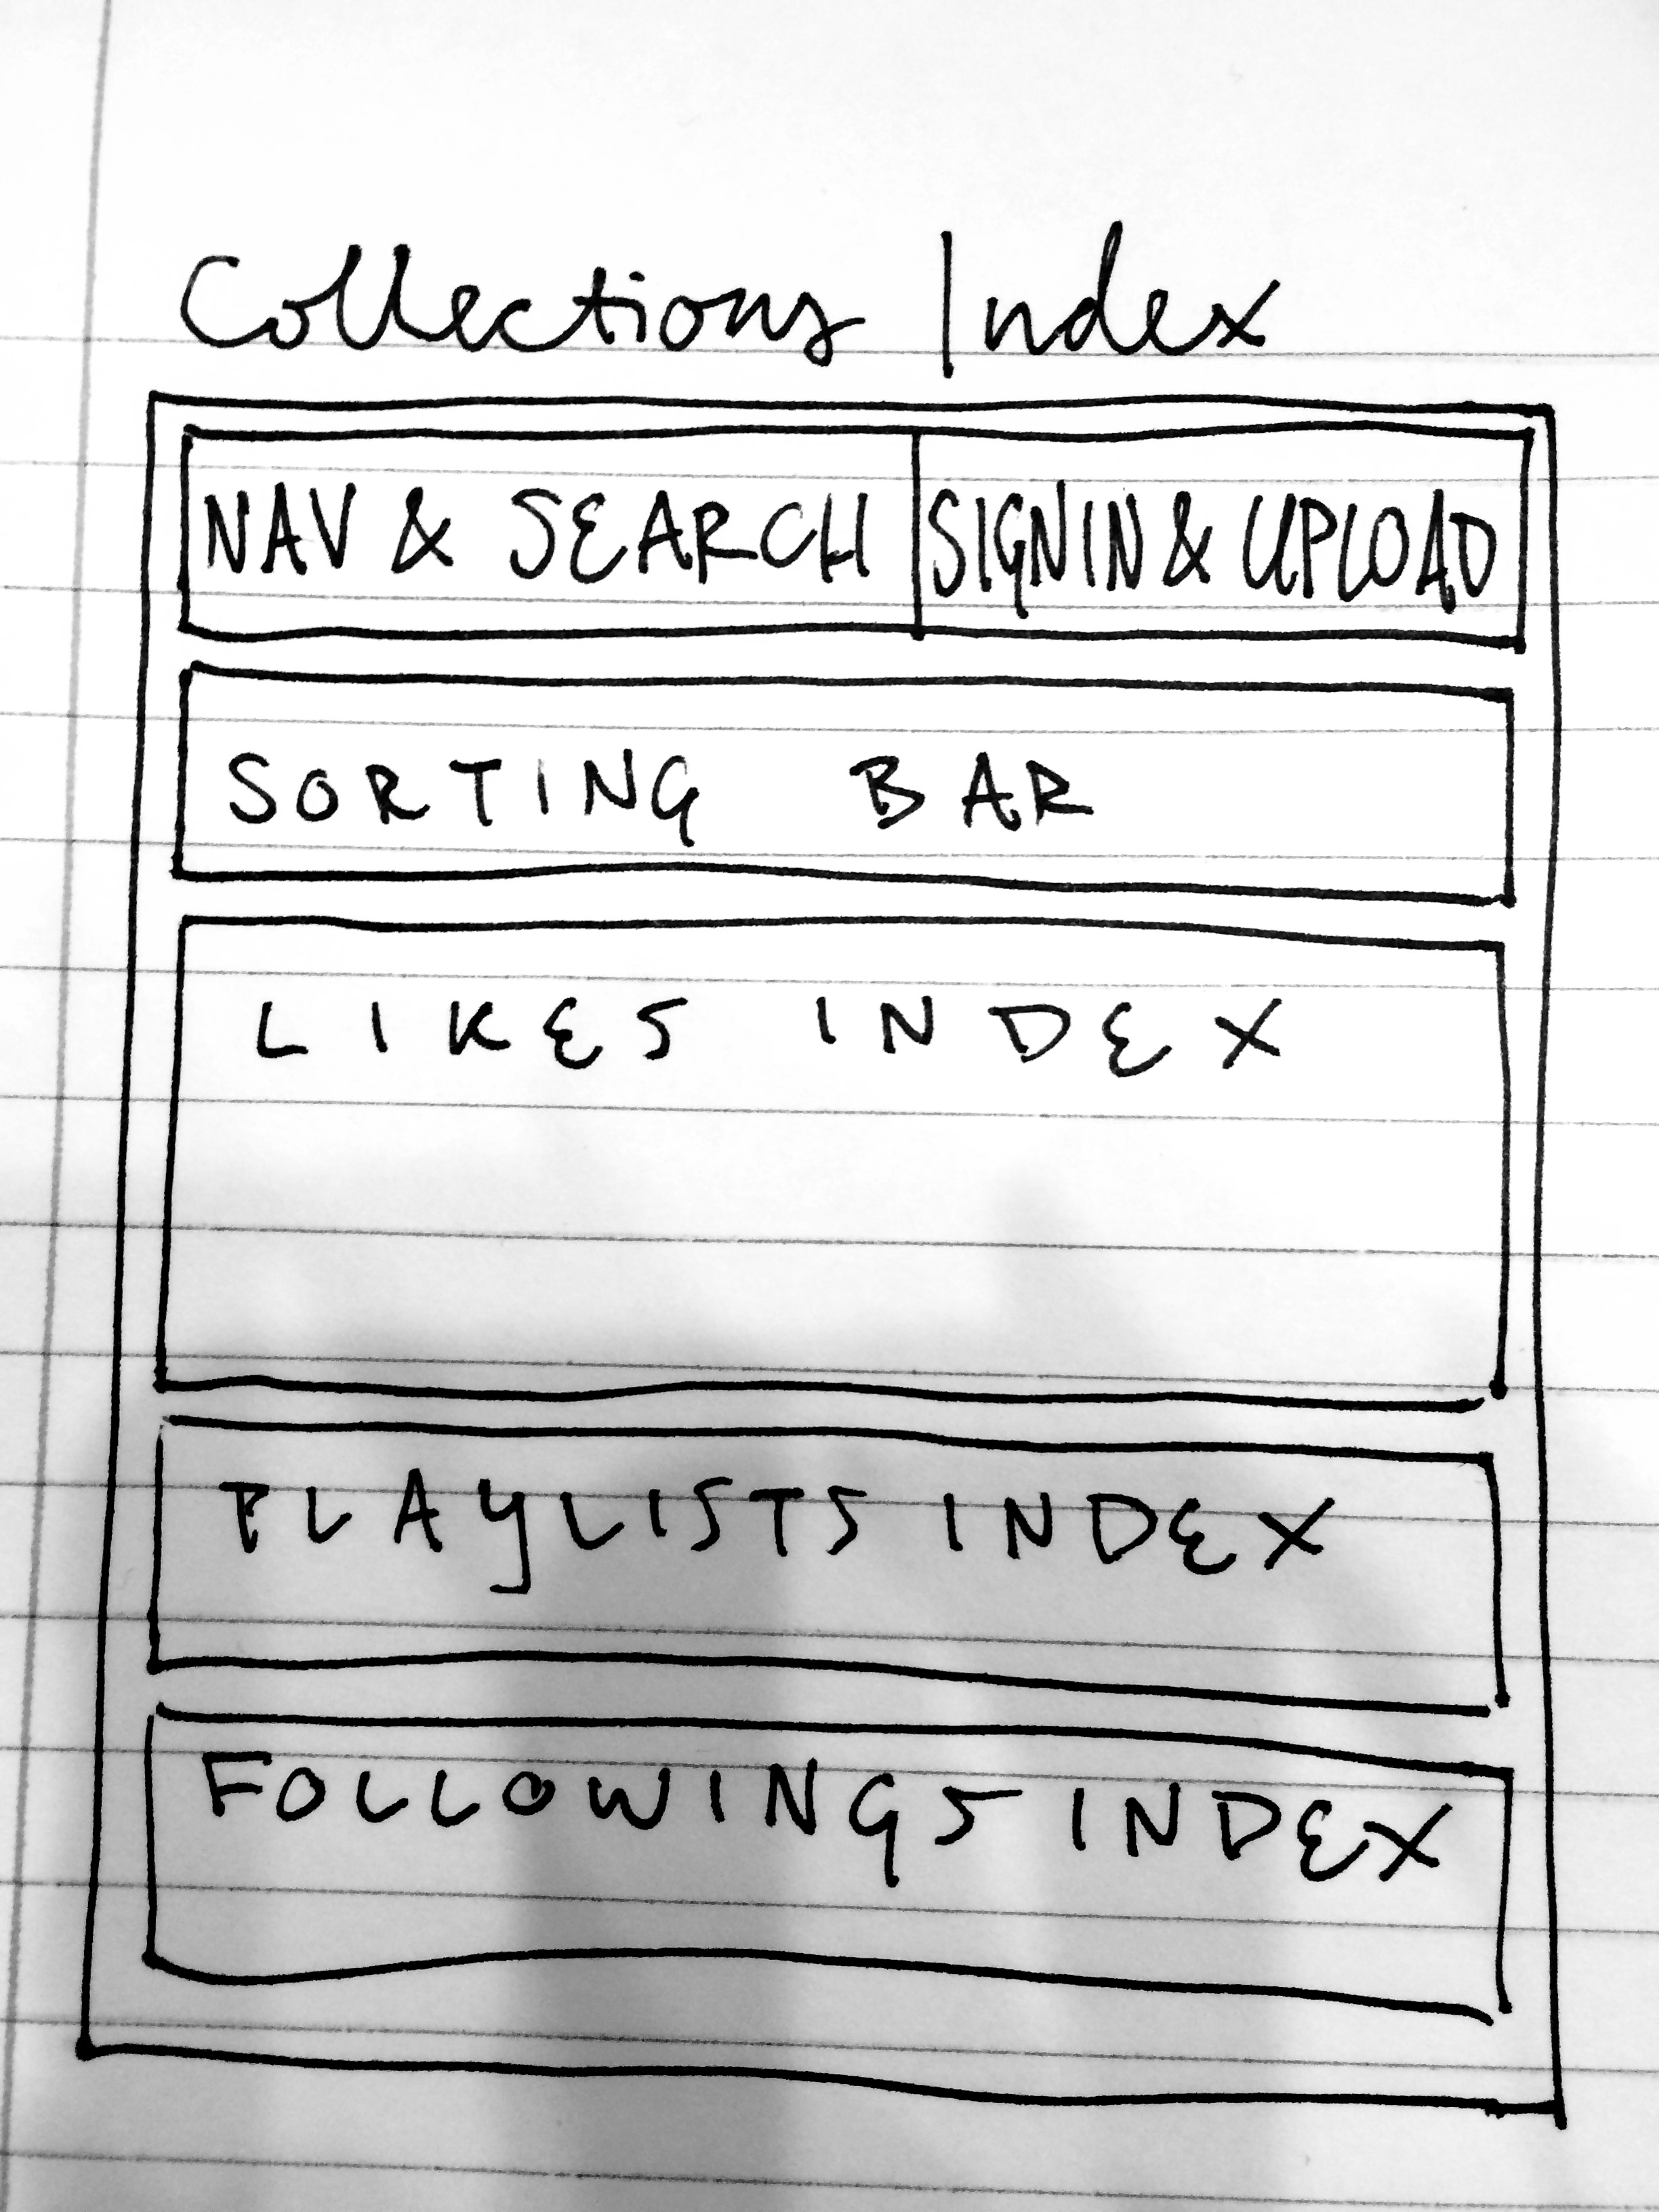 Collections Index
NAV & SEARCH
SIGNIN & UPLOAD
SORTING BAR
LIKES INDEX
PLAYLISTS INDEX
FOLLOWINGS INDEX